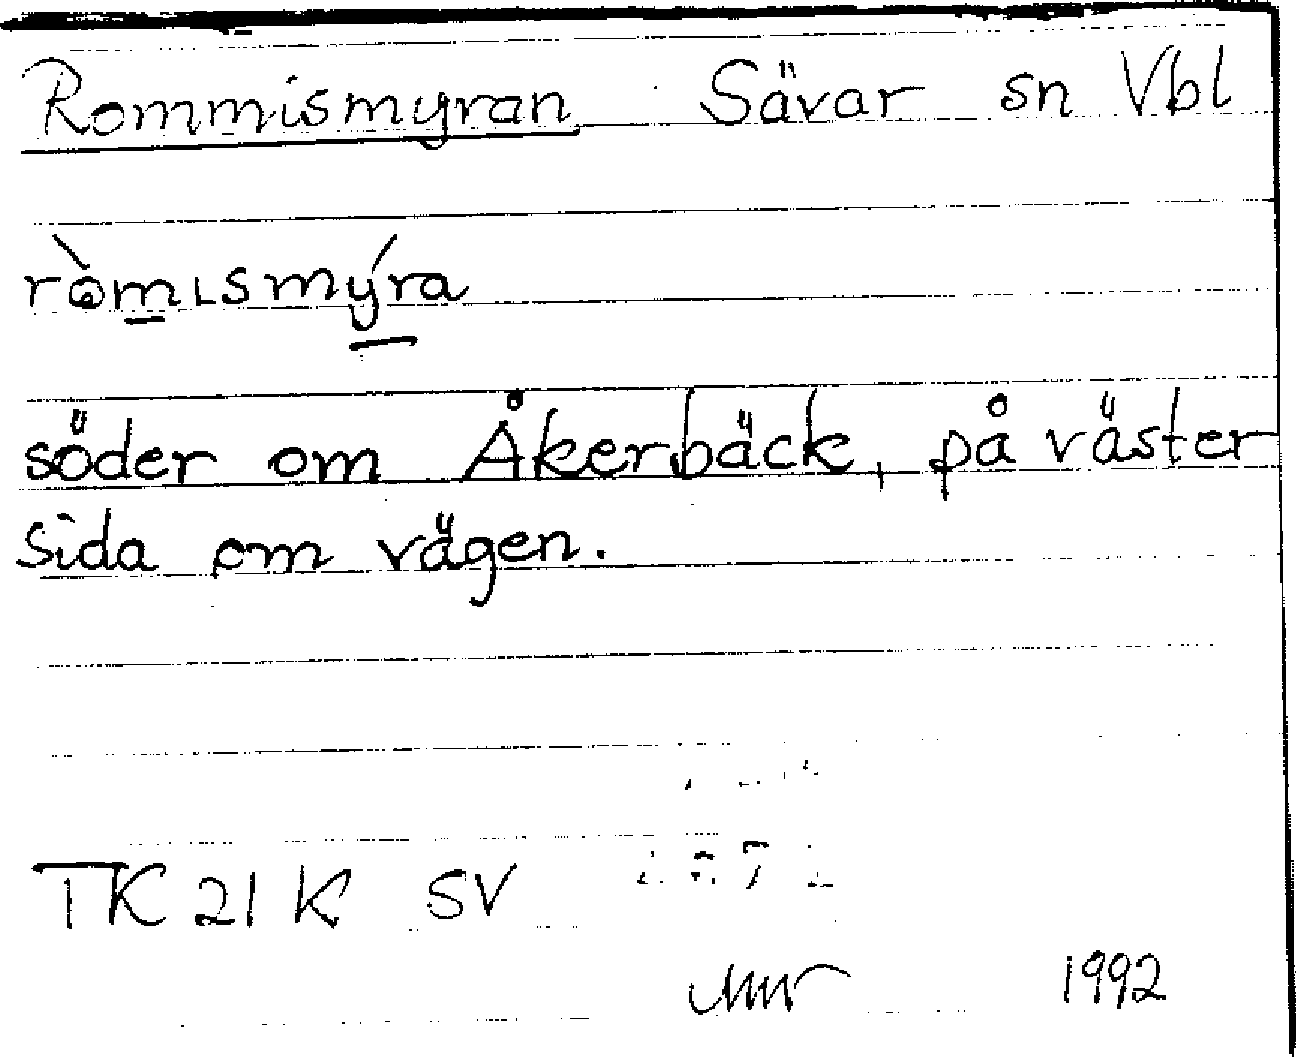 Rommismyran Sävar sn Vbl
ròmɩsmýra
söder om Åkerbäck, på väster
sida om vägen.
TK 21 K SV
1992